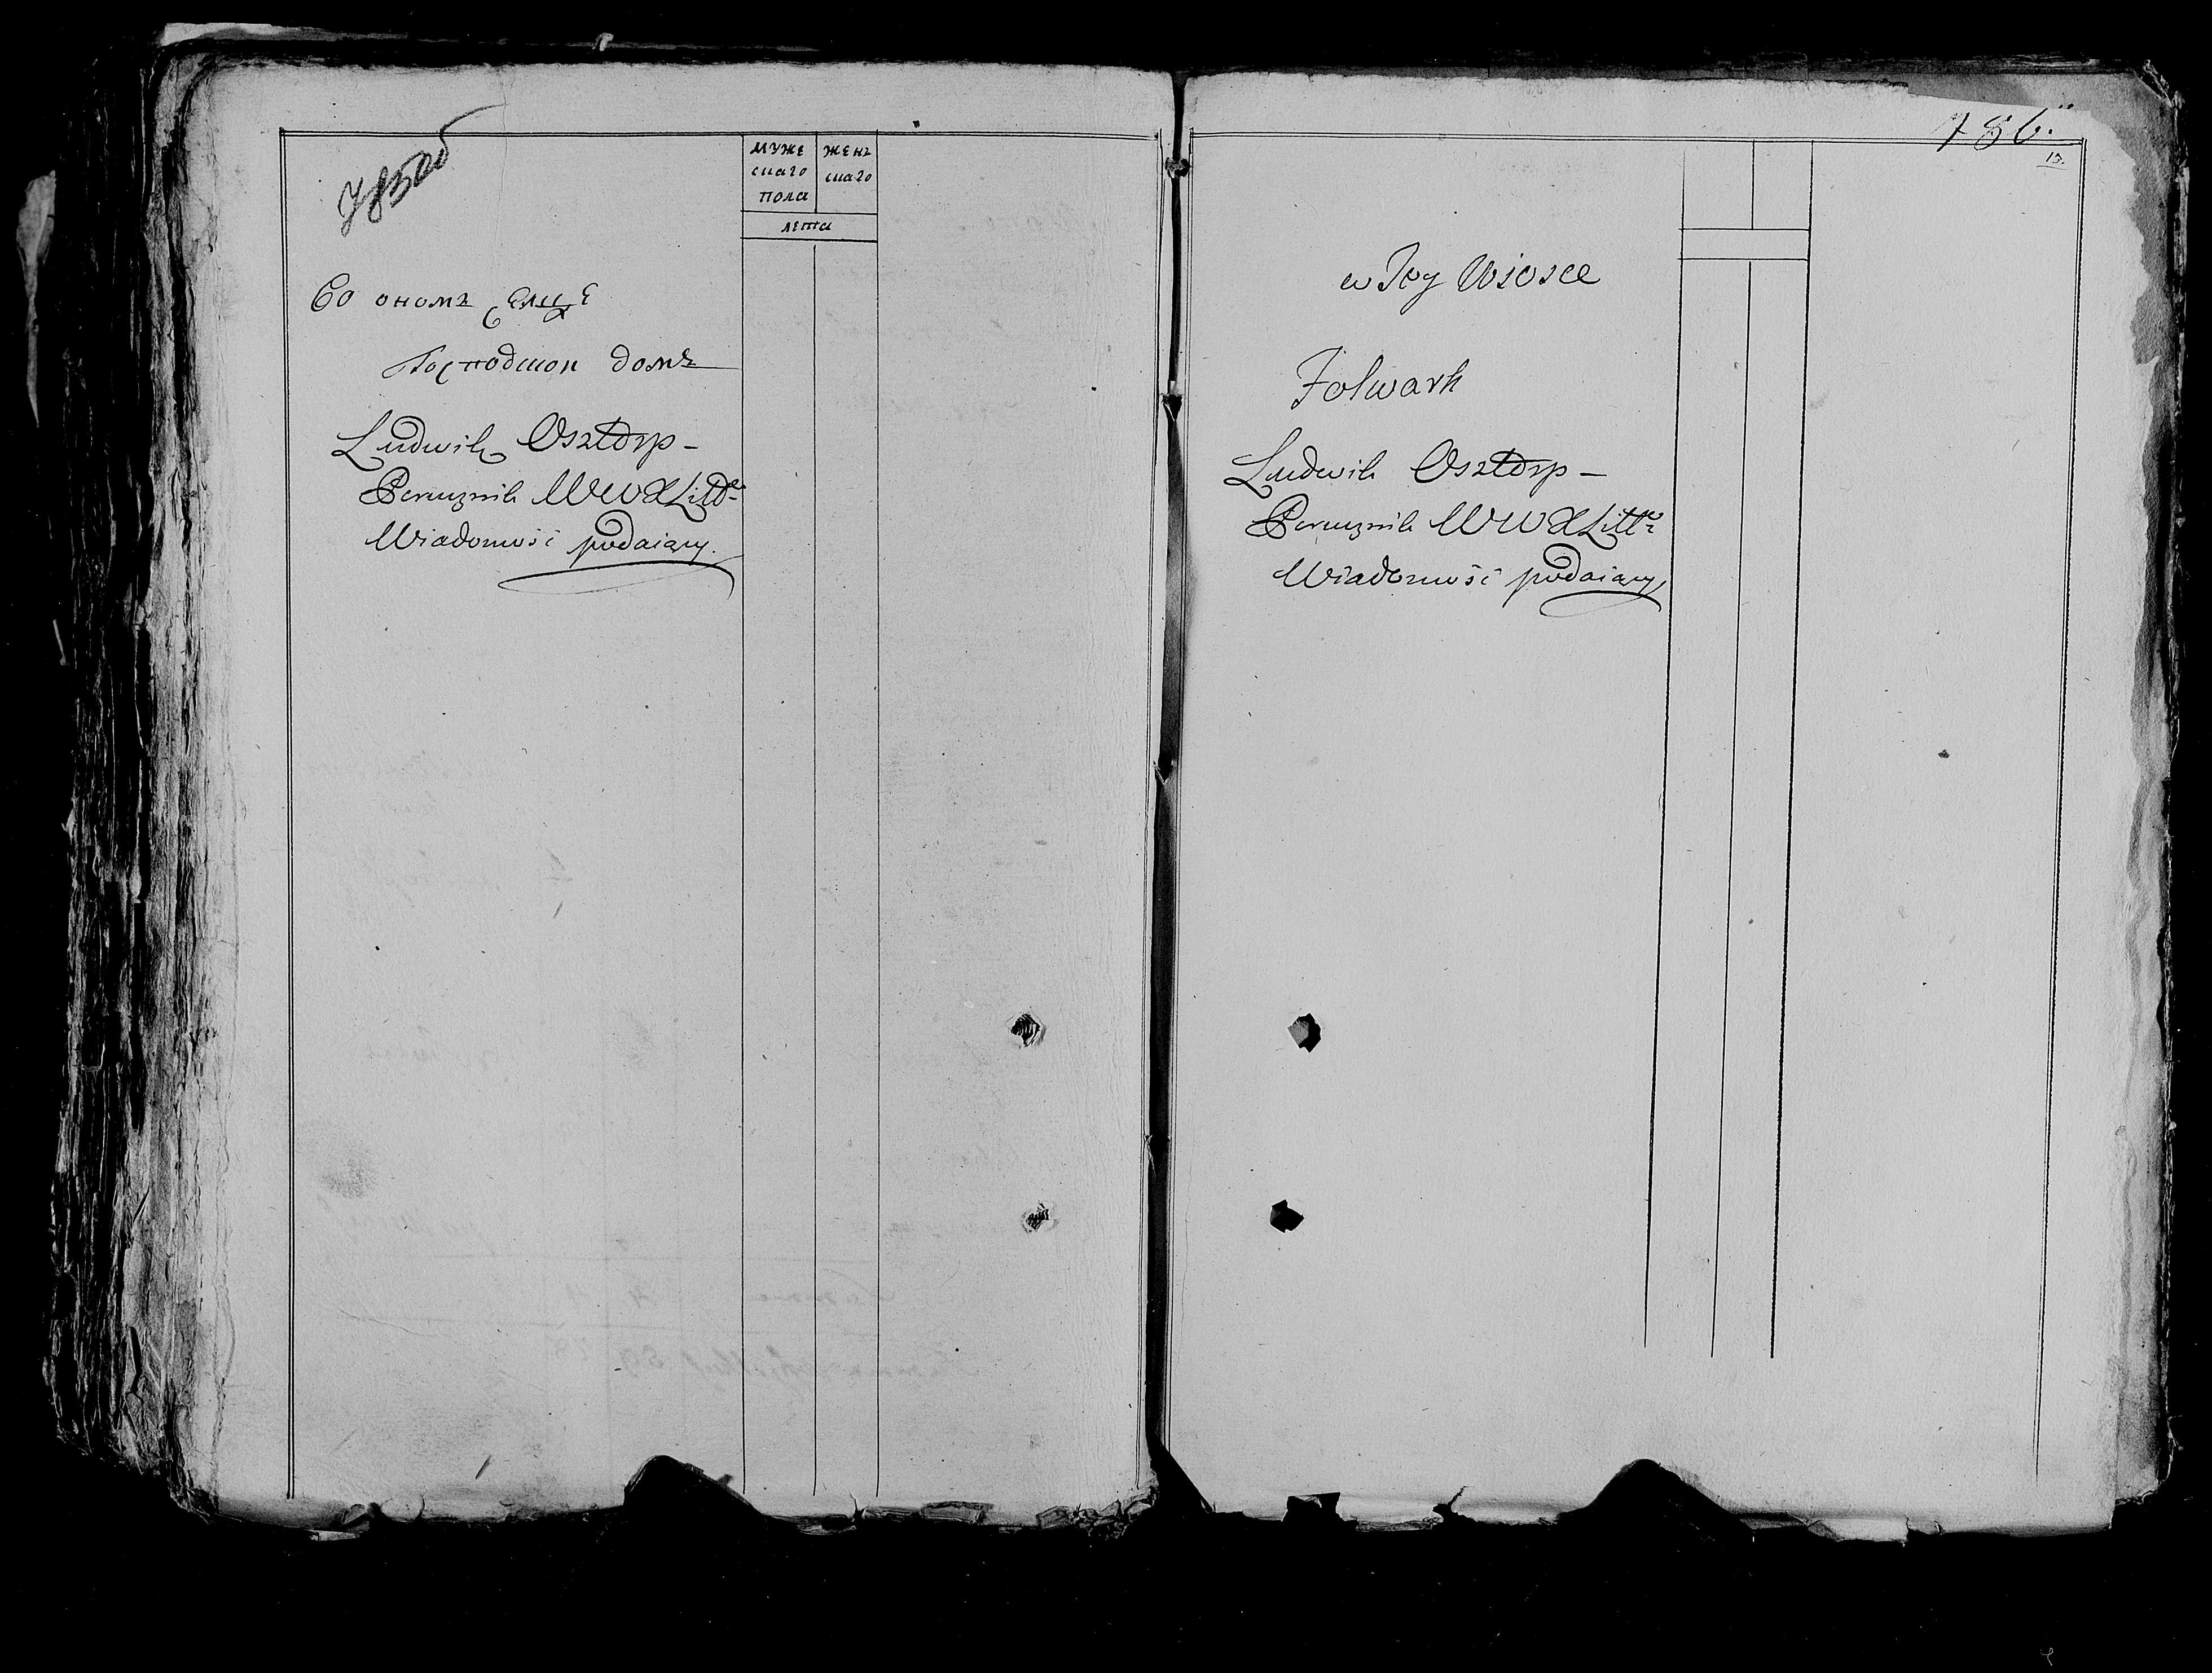 785об
муже
скаго
пола
женъ
скаго
лета
Во ономъ селце
Господской домъ
Ludwik Osztorp –
Porucznik WWXLitt°
Wiadomość podaiący.
786.
13.
w Tey Wiosce
Folwark
Ludwik Osztorp –
Porucznik WWXLitt°
Wiadomość podaiący